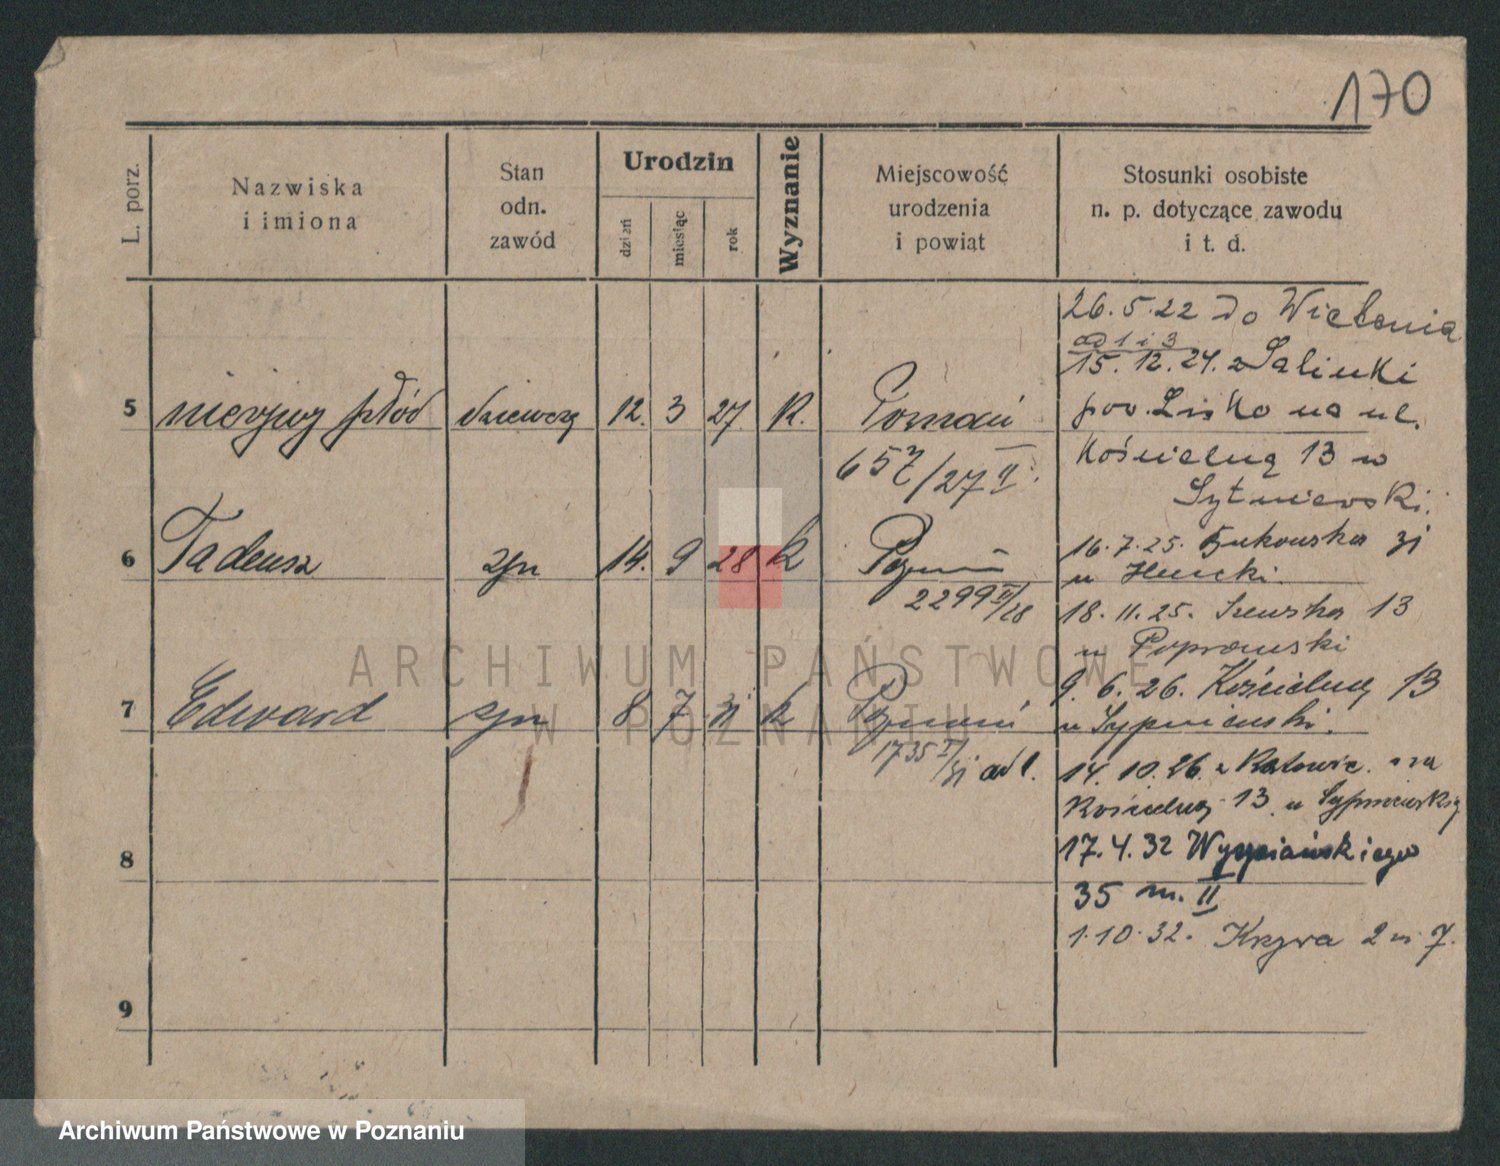 170
L. porz.
Nazwiska
i imiona
Stan
odn.
zawód
Urodzin
dzień
miesiąc
rok
Wyznanie
Miejscowość
urodzenia
i powiat
Stosunki osobiste
n. p. dotyczące zawodu
i t. d.
5 nieżywy płód dziewcz 12. 3 27 K. Poznań
657/27 II
6 Tadeusz syn 14. 9 28 k Poznań
2299 II/28
7 Edward syn 8 7 31 k Poznań
1735 II/31 ad 1.
8
9
26.5.22 do Wielenia
ad 1 i 3
15.12.24. z
pow. Lisko na ul.
Kościelną 13 w
16.7.25. Bukowska 31
u
18.11.25. Szewska 13
u Poprawski
9.6.26. Kościelny 13
u Sypniewski.
14.10.26. z Katowic na
Kościelny 13 u
17.4.32 Wyspiańskiego
35 m. II
1.10.32. Krzywa 2 m 7.
ARCHIWUM PAŃSTWOWE
W POZNANIU
Archiwum Państwowe w Poznaniu